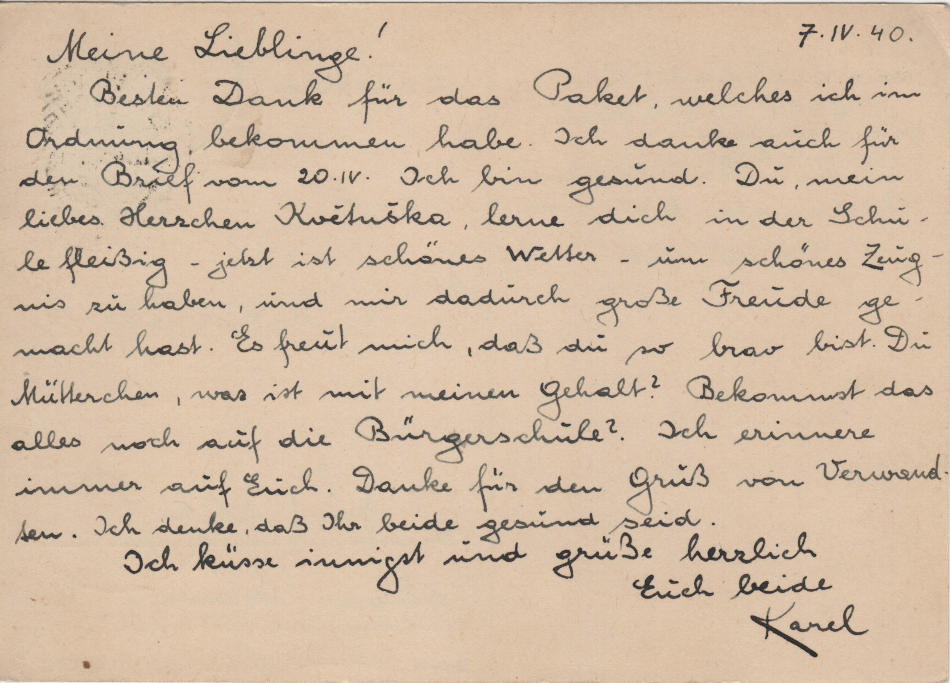 7.IV.40.
Meine Lieblinge!
Besten Dank für das Paket, welches ich im
Ordnung, bekommen habe. Ich danke auch für
den Brief vom 20.IV. Ich bin gesund. Du, mein
liebes Herzchen Květuška, lerne dich in der Schu-
le fleißig - jetzt ist schönes Wetter - um schönes Zeug-
nis zu haben, und mir dadurch große Freude ge-
macht hast. Es freut mich, daß du so brav bist. Du
Mütterchen, was ist mit meinen Gehalt? Bekommst das
alles noch auf die Bürgerschule? Ich erinnere
immer auf Euch. Danke für den Gruß von Verwand-
ten. Ich denke, daß Ihr beide gesund seid.
Ich küsse innigst und grüße herzlich
Euch beide
Karel